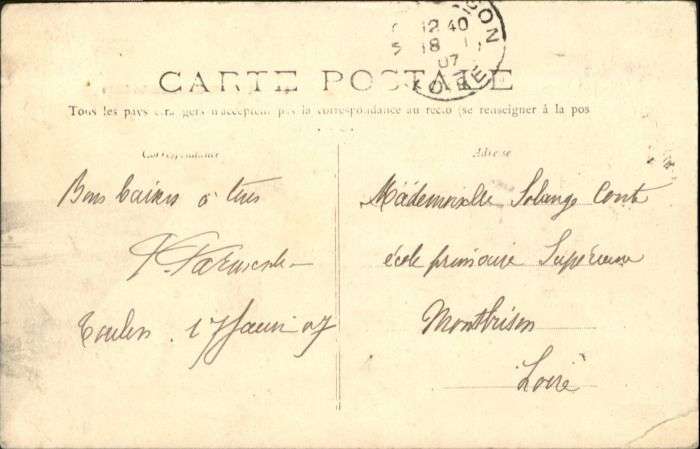 12 40
18 1
07
LOIRE
CARTE POSTALE
Tous les pays étrangers n'acceptent pas la correspondance au recto (se renseigner à la pos
Correspondance
Bons baisers à tous
Toulon . 17 Janvi 07
Adresse
Mademoiselle Solange Cont
école primaire Supérieure
Montbrison
Loire